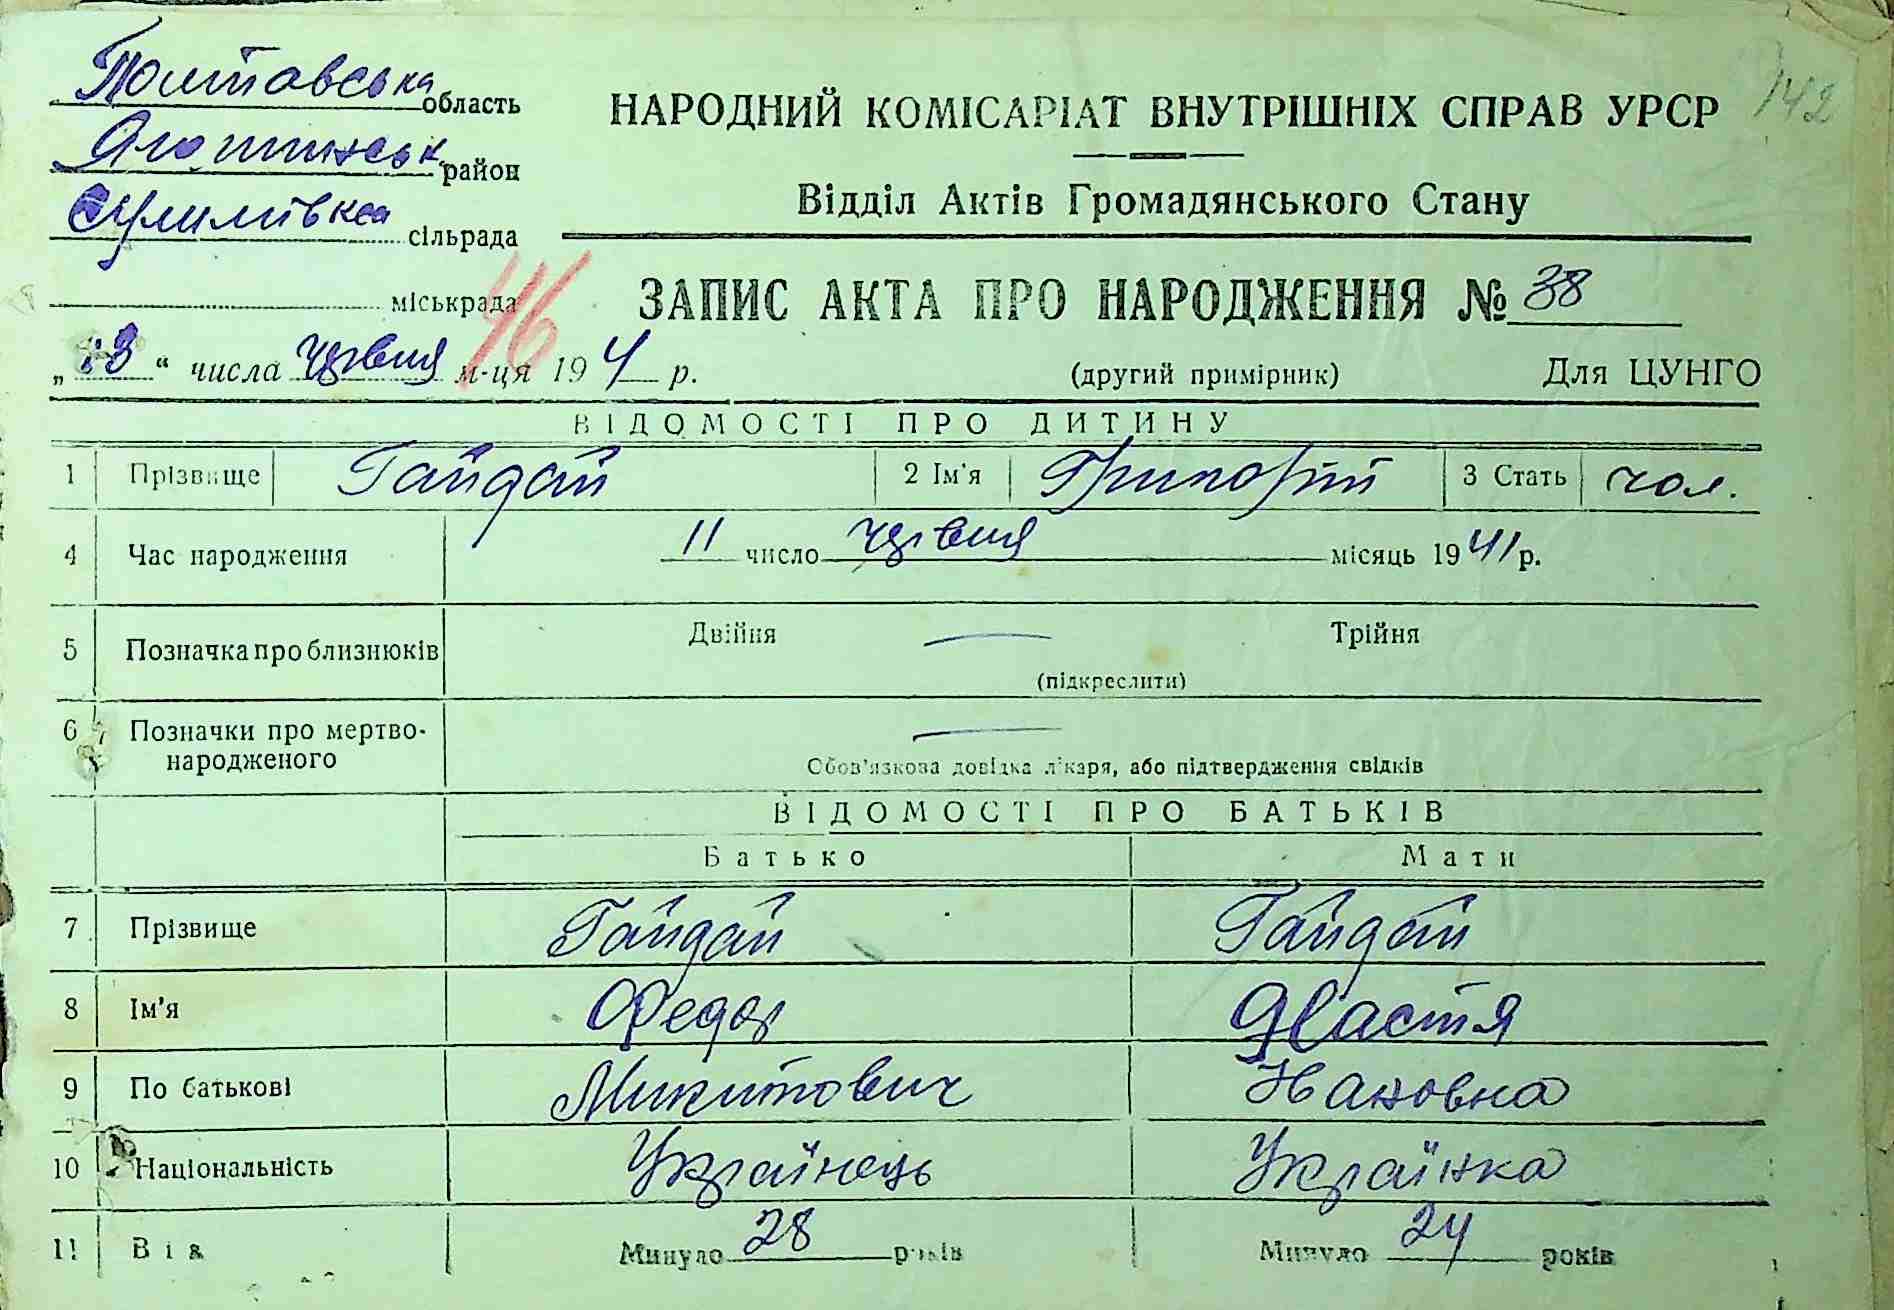 Полтавська область
Яготинськ. район
Сулимівка сільрада
міськрада
142
46
НАРОДНИЙ КОМІСАРІАТ ВНУТРІШНІХ СПРАВ УРСР
Відділ Актів Громадянського Стану
ЗАПИС АКТА ПРО НАРОДЖЕННЯ № 38
„ 13 “ числа червня м-ця 194 р.
(другий примірник) Для ЦУНГО
ВІДОМОСТІ ПРО ДИТИНУ
1 Прізвище Гайдай 2 Ім'я Григорій 3 Стать чол.
4 Час народження 11 число червня місяць 1941 р.
5 Позначка про близнюків Двійня — Трійня
(підкреслити)
6 Позначки про мертво-
народженого —
Обов'язкова довідка лікаря, або підтвердження свідків
ВІДОМОСТІ ПРО БАТЬКІВ
Батько Мати
7 Прізвище Гайдай Гайдай
8 Ім'я Федор Настя
9 По батькові Микитович Івановна
10 Національність Українець Українка
11 Вік Минуло 28 років Минуло 24 років